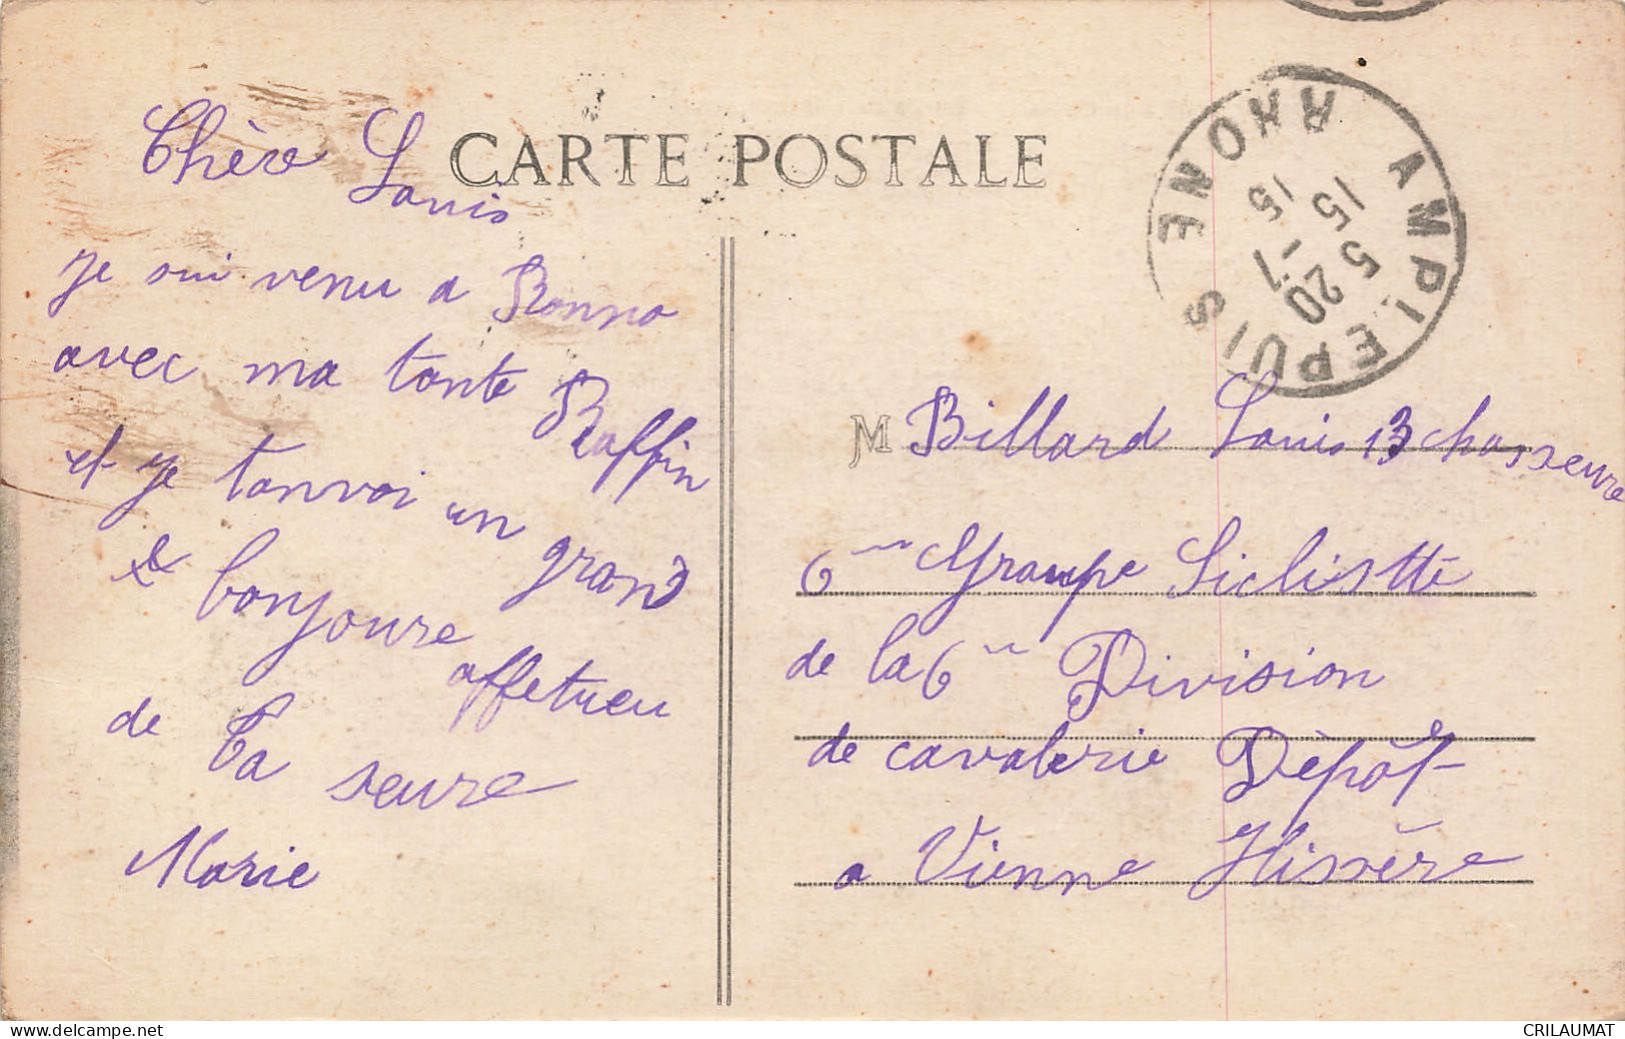 CARTE POSTALE
Chère Louis
Je sui venu a Ronno
avec ma tante Raffin
et je tanvoi un grand
bonjoure affetueu
de ta seure
Marie
AMPLEPUIS RHONE
15 15
5 20 -7
15
M Billard Louis 13 chasseure
6me Groupe Siclistte
de la 6me Division
de cavalerie Dèpôt
a Vienne Hissère
www.delcampe.net
CRILAUMAT